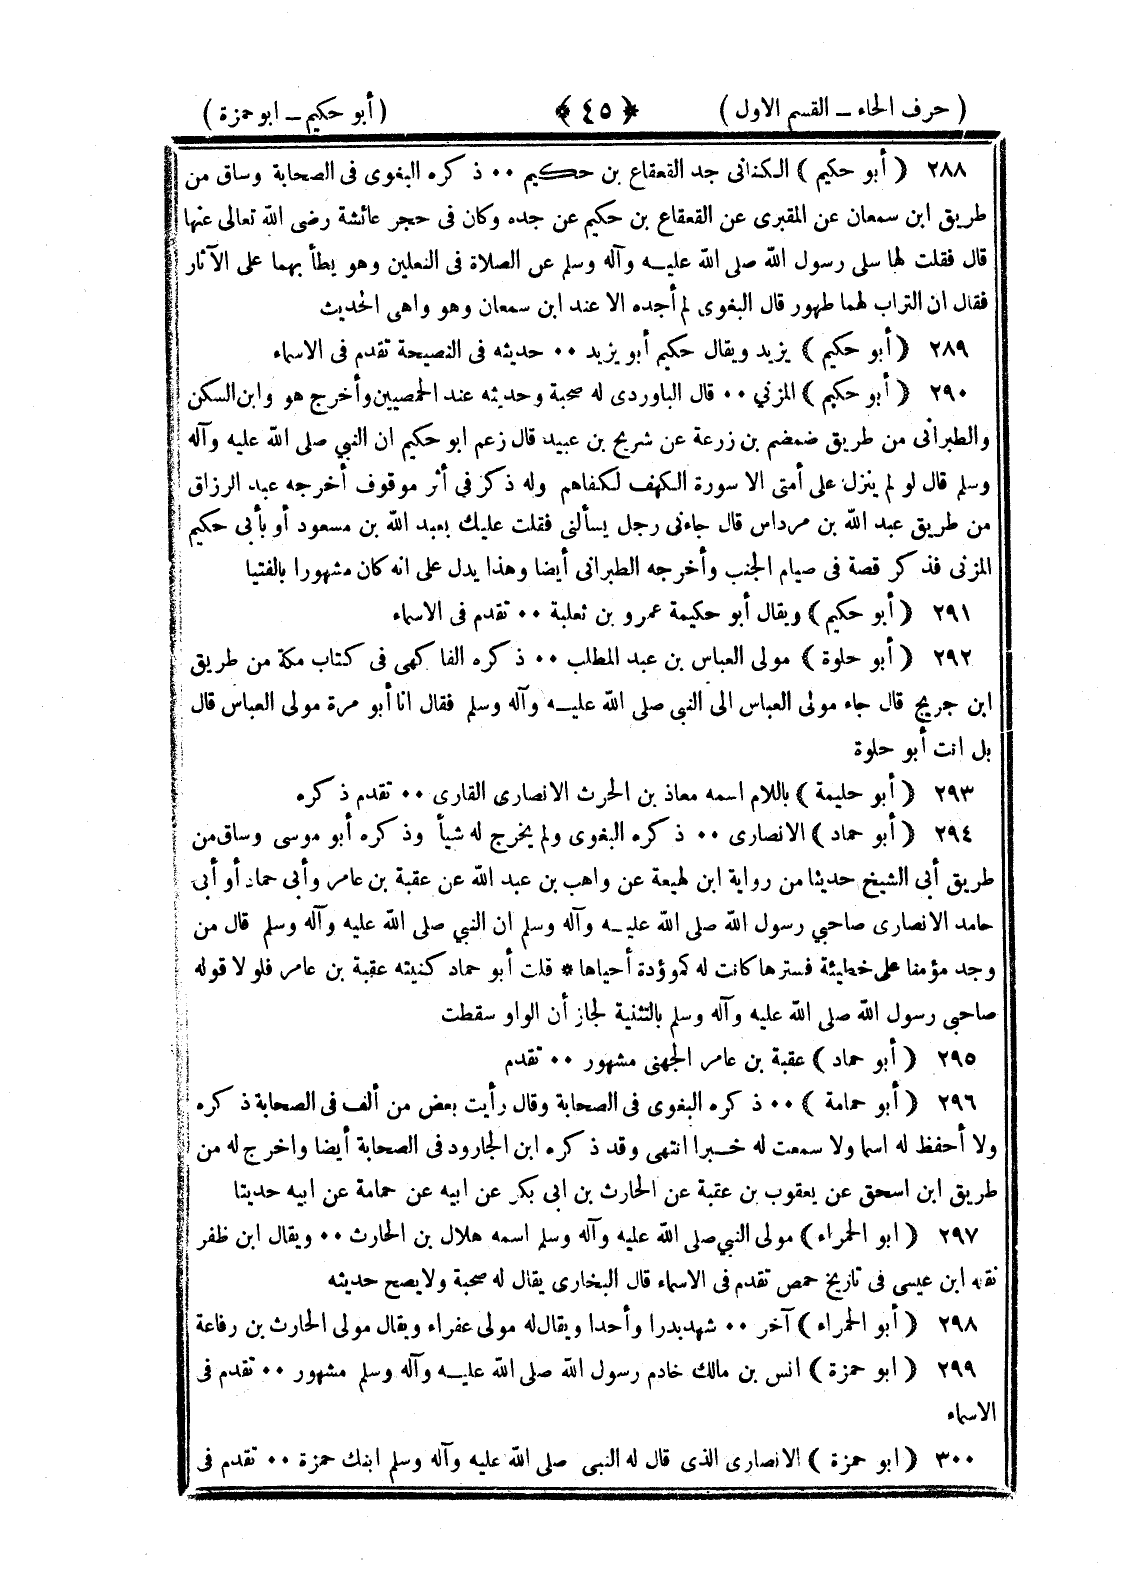 ( حرف الحاء ــ القسم الاول ) ﴿ ٤٥ ﴾ ( أبو حكيم ــ ابو حمزة )
٢٨٨ ( أبو حكيم ) الكنانى جد القعقاع بن حكيم ٠٠ ذكره البغوى فى الصحابة وساق من
طريق ابن سمعان عن المقبرى عن القعقاع بن حكيم عن جده وكان فى حجر عائشة رضى الله تعالى عنها
قال فقلت لها سلى رسول الله صلى الله عليه وآله وسلم عن الصلاة فى النعلين وهو يطأ بهما على الآثار
فقال ان التراب لهما طهور قال البغوى لم أجده الا عند ابن سمعان وهو واهى الحديث
٢٨٩ ( أبو حكيم ) يزيد ويقال حكيم أبو يزيد ٠٠ حديثه فى النصيحة تقدم فى الاسماء
٢٩٠ ( أبو حكيم ) المزني ٠٠ قال الباوردى له صحبة وحديثه عند الحمصيين وأخرج هو وابن السكن
والطبرانى من طريق ضمضم بن زرعة عن شريح بن عبيد قال زعم ابو حكيم ان النبي صلى الله عليه وآله
وسلم قال لو لم ينزل على أمتى الا سورة الكهف لكفاهم وله ذكر فى أثر موقوف أخرجه عبد الرزاق
من طريق عبد الله بن مرداس قال جاءنى رجل يسألنى فقلت عليك بعبد الله بن مسعود أو بأبى حكيم
المزنى فذكر قصة فى صيام الجنب وأخرجه الطبرانى أيضا وهذا يدل على انه كان مشهورا بالفتيا
٢٩١ ( أبو حكيم ) ويقال أبو حكيمة عمرو بن ثعلبة ٠٠ تقدم فى الاسماء
٢٩٢ ( أبو حلوة ) مولى العباس بن عبد المطلب ٠٠ ذكره الفاكهى فى كتاب مكة من طريق
ابن جريج قال جاء مولى العباس الى النبى صلى الله عليه وآله وسلم فقال انا أبو مرة مولى العباس قال
بل انت أبو حلوة
٢٩٣ ( أبو حليمة ) باللام اسمه معاذ بن الحرث الانصارى القارى ٠٠ تقدم ذكره
٢٩٤ ( أبو حماد ) الانصارى ٠٠ ذكره البغوى ولم يخرج له شيأ وذكره أبو موسى وساق من
طريق أبى الشيخ حديثا من رواية ابن لهيعة عن واهب بن عبد الله عن عقبة بن عامر وأبى حماد أو أبى
حامد الانصارى صاحبي رسول الله صلى الله عليه وآله وسلم ان النبي صلى الله عليه وآله وسلم قال من
وجد مؤمنا على خطيئة فسترها كانت له كموؤدة أحياها * قلت أبو حماد كنيته عقبة بن عامر فلو لا قوله
صاحبي رسول الله صلى الله عليه وآله وسلم بالتثنية لجاز أن الواو سقطت
٢٩٥ ( أبو حماد ) عقبة بن عامر الجهنى مشهور ٠٠ تقدم
٢٩٦ ( أبو حمامة ) ٠٠ ذكره البغوى فى الصحابة وقال رأيت بعض من ألف فى الصحابة ذكره
ولا أحفظ له اسما ولا سمعت له خبرا انتهى وقد ذكره ابن الجارود فى الصحابة أيضا واخرج له من
طريق ابن اسحق عن يعقوب بن عقبة عن الحارث بن ابى بكر عن ابيه عن حمامة عن ابيه حديثا
٢٩٧ ( ابو الحمراء ) مولى النبي صلى الله عليه وآله وسلم اسمه هلال بن الحارث ٠٠ ويقال ابن ظفر
نقله ابن عيسى فى تاريخ حمص تقدم فى الاسماء قال البخارى يقال له صحبة ولا يصح حديثه
٢٩٨ ( أبو الحمراء ) آخر ٠٠ شهد بدرا وأحدا ويقال له مولى عفراء ويقال مولى الحارث بن رفاعة
٢٩٩ ( ابو حمزة ) انس بن مالك خادم رسول الله صلى الله عليه وآله وسلم مشهور ٠٠ تقدم فى
الاسماء
٣٠٠ ( ابو حمزة ) الانصارى الذى قال له النبى صلى الله عليه وآله وسلم ابنك حمزة ٠٠ تقدم فى